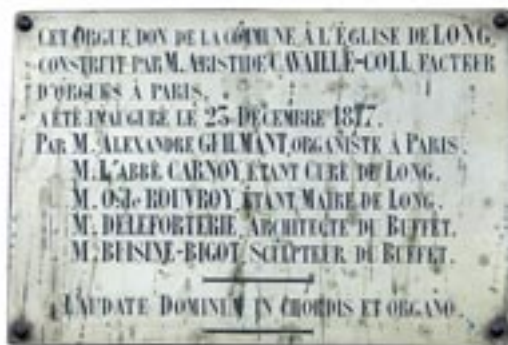 CET ORGUE DON DE LA COMMUNE À L'ÉGLISE DE LONG,
CONSTRUIT PAR M. ARISTIDE CAVAILLÉ-COLL, FACTEUR
D'ORGUES À PARIS,
A ÉTÉ INAUGURÉ LE 23 DÉCEMBRE 1877.
PAR M. ALEXANDRE GUILMANT, ORGANISTE À PARIS.
M. L'ABBÉ CARNOY, ÉTANT CURÉ DE LONG.
M. ROUVROY, ÉTANT MAIRE DE LONG.
M. DELEFORTERIE, ARCHITECTE DU BUFFET.
M. BUISINE-BIGOT, SCULPTEUR DU BUFFET.
LAUDATE DOMINUM IN CHORDIS ET ORGANO.